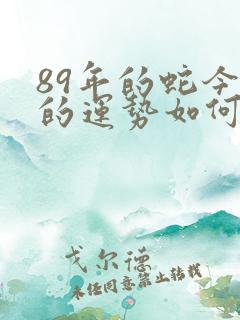 89年的蛇今
的运势如何
戈尔德
未经同意禁止转载